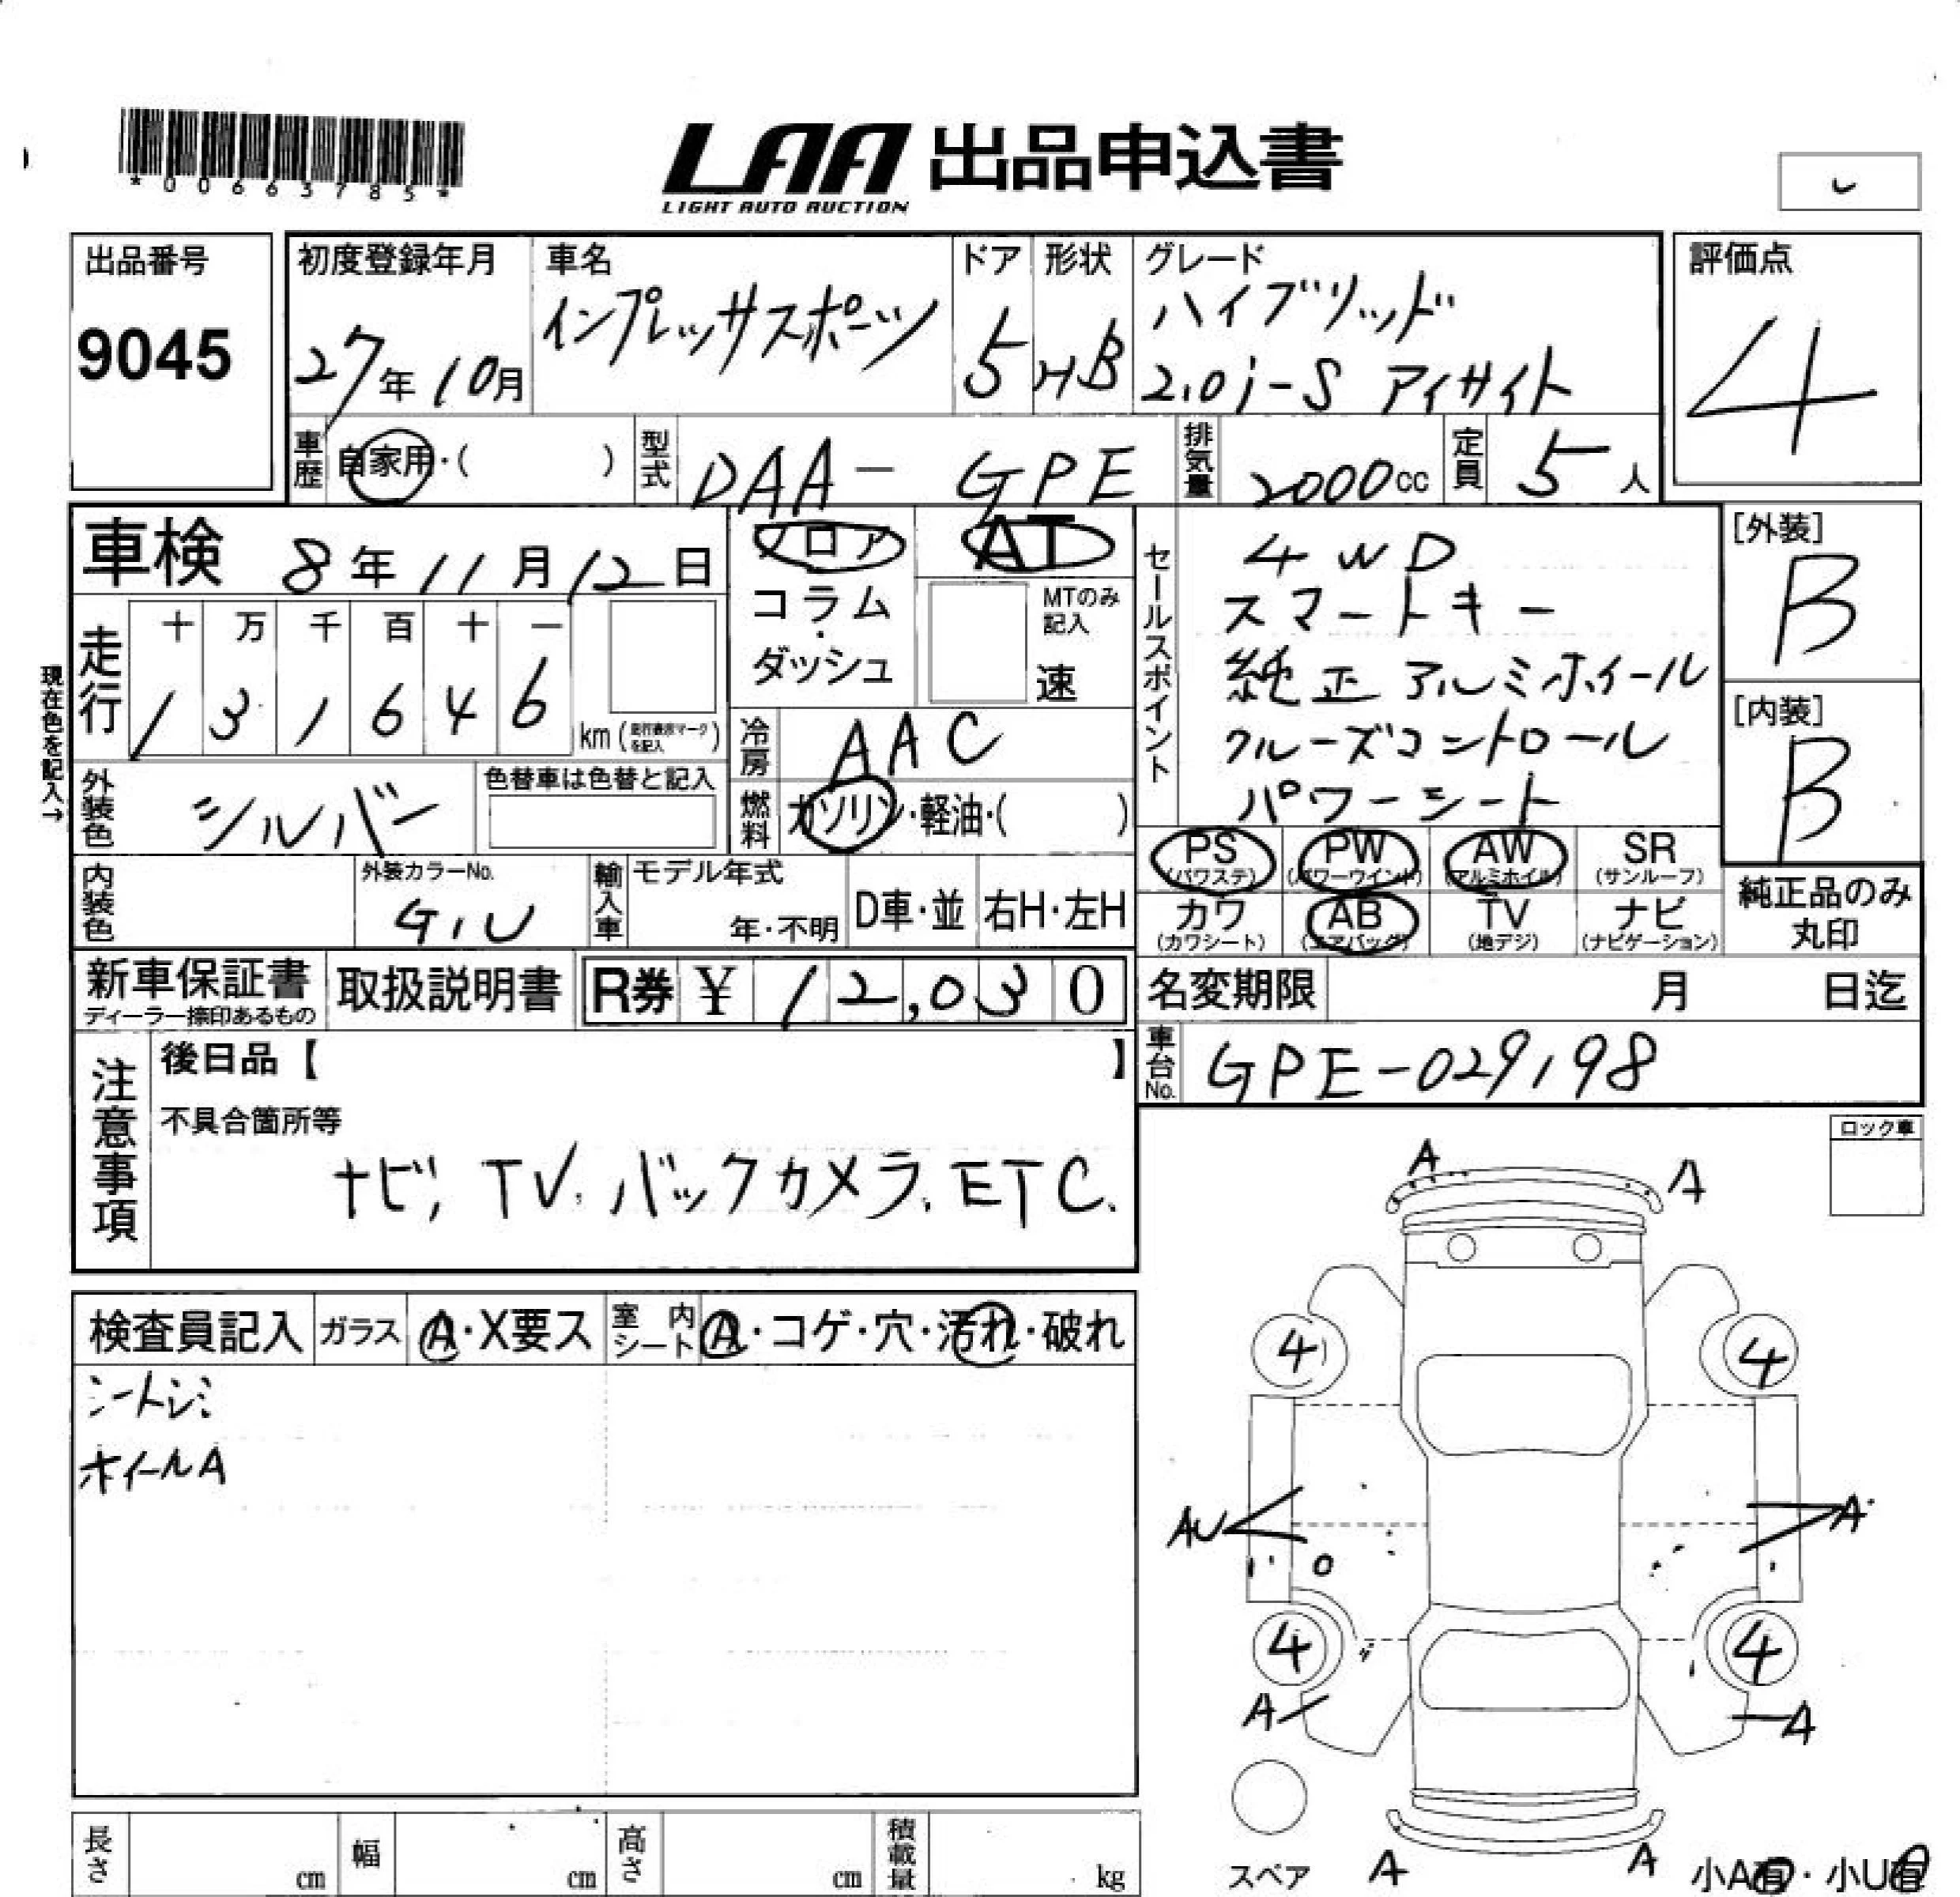 *00663785*
LAA 出品申込書
LIGHT AUTO AUCTION
出品番号
9045
初度登録年月
27年10月
車名
インプレッサスポーツ
ドア
5
形状
HB
グレード
ハイブリッド
2.0i-S アイサイト
評価点
4
車歴
自家用・( )
型式
DAA- GPE
排気量
2000cc
定員
5人
車検 8年11月12日
フロア
コラム
・
ダッシュ
AT
MTのみ
記入
速
セールスポイント
4WD
スマートキー
純正アルミホイール
クルーズコントロール
パワーシート
[外装]
B
[内装]
B
現在色を記入→
走行
十 万 千 百 十 一
1 3 1 6 4 6
km(
を記入 )
冷房
AAC
外装色
シルバー
色替車は色替と記入
燃料
ガソリン・軽油・( )
PS
(パワステ)
PW
(パワーウインド)
AW
(アルミホイル)
SR
(サンルーフ)
カワ
(カワシート)
AB
(エアバッグ)
TV
(地デジ)
ナビ
(ナビゲーション)
純正品のみ
丸印
内装色
外装カラーNo.
G1U
輸入車
モデル年式
年・不明
D車・並
右H・左H
新車保証書
ディーラー捺印あるもの
取扱説明書
R券 ¥ 12,030
名変期限 月 日迄
車台No.
GPE-029198
注意事項
後日品【 】
不具合箇所等
ナビ, TV, バックカメラ, ETC.
ロック車
検査員記入
ガラス
A・X要ス
室内シート
A・コゲ・穴・汚れ・破れ
シートシミ
ホイールA
A A
4 4
AU A
4 4
A A
スペア
A A
小A有・小U有
長さ cm
幅 cm
高さ cm
積載量 kg